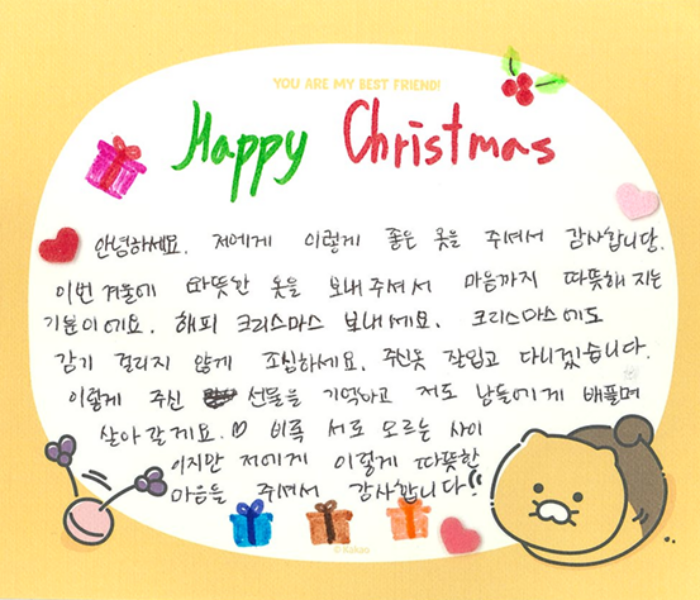 YOU ARE MY BEST FRIEND!
Happy Christmas
안녕하세요. 저에게 이렇게 좋은 옷을 주셔서 감사합니다.
이번 겨울에 따뜻한 옷을 보내주셔서 마음까지 따뜻해 지는
기분이에요. 해피 크리스마스 보내세요. 크리스마스에도
감기 걸리지 않게 조심하세요. 주신옷 잘입고 다니겠습니다.
이렇게 주신 선물을 기억하고 저도 남들에게 베풀며
살아갈게요.♡ 비록 서로 모르는 사이
이지만 저에게 이렇게 따뜻한
마음을 주셔서 감사합니다!
© Kakao